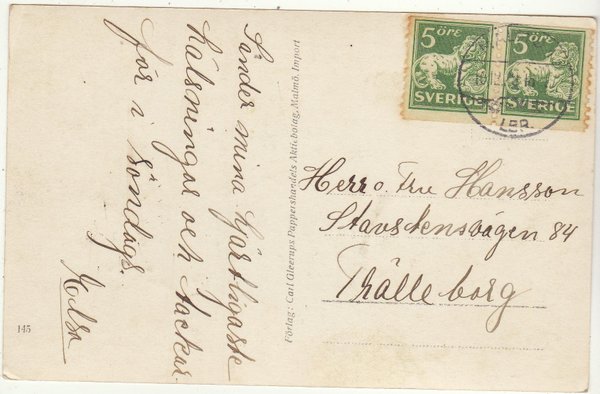 Sänder mina hjärtligaste
hälsningar och tackar
för i söndags.
Förlag: Carl Gleerups Pappershandels Aktiebolag, Malmö. Import
145
5 ÖRE
SVERIGE
5 ÖRE
SVERIGE
LBR
Herr o. Fru Hansson
Stavstensvägen 84
Trälleborg